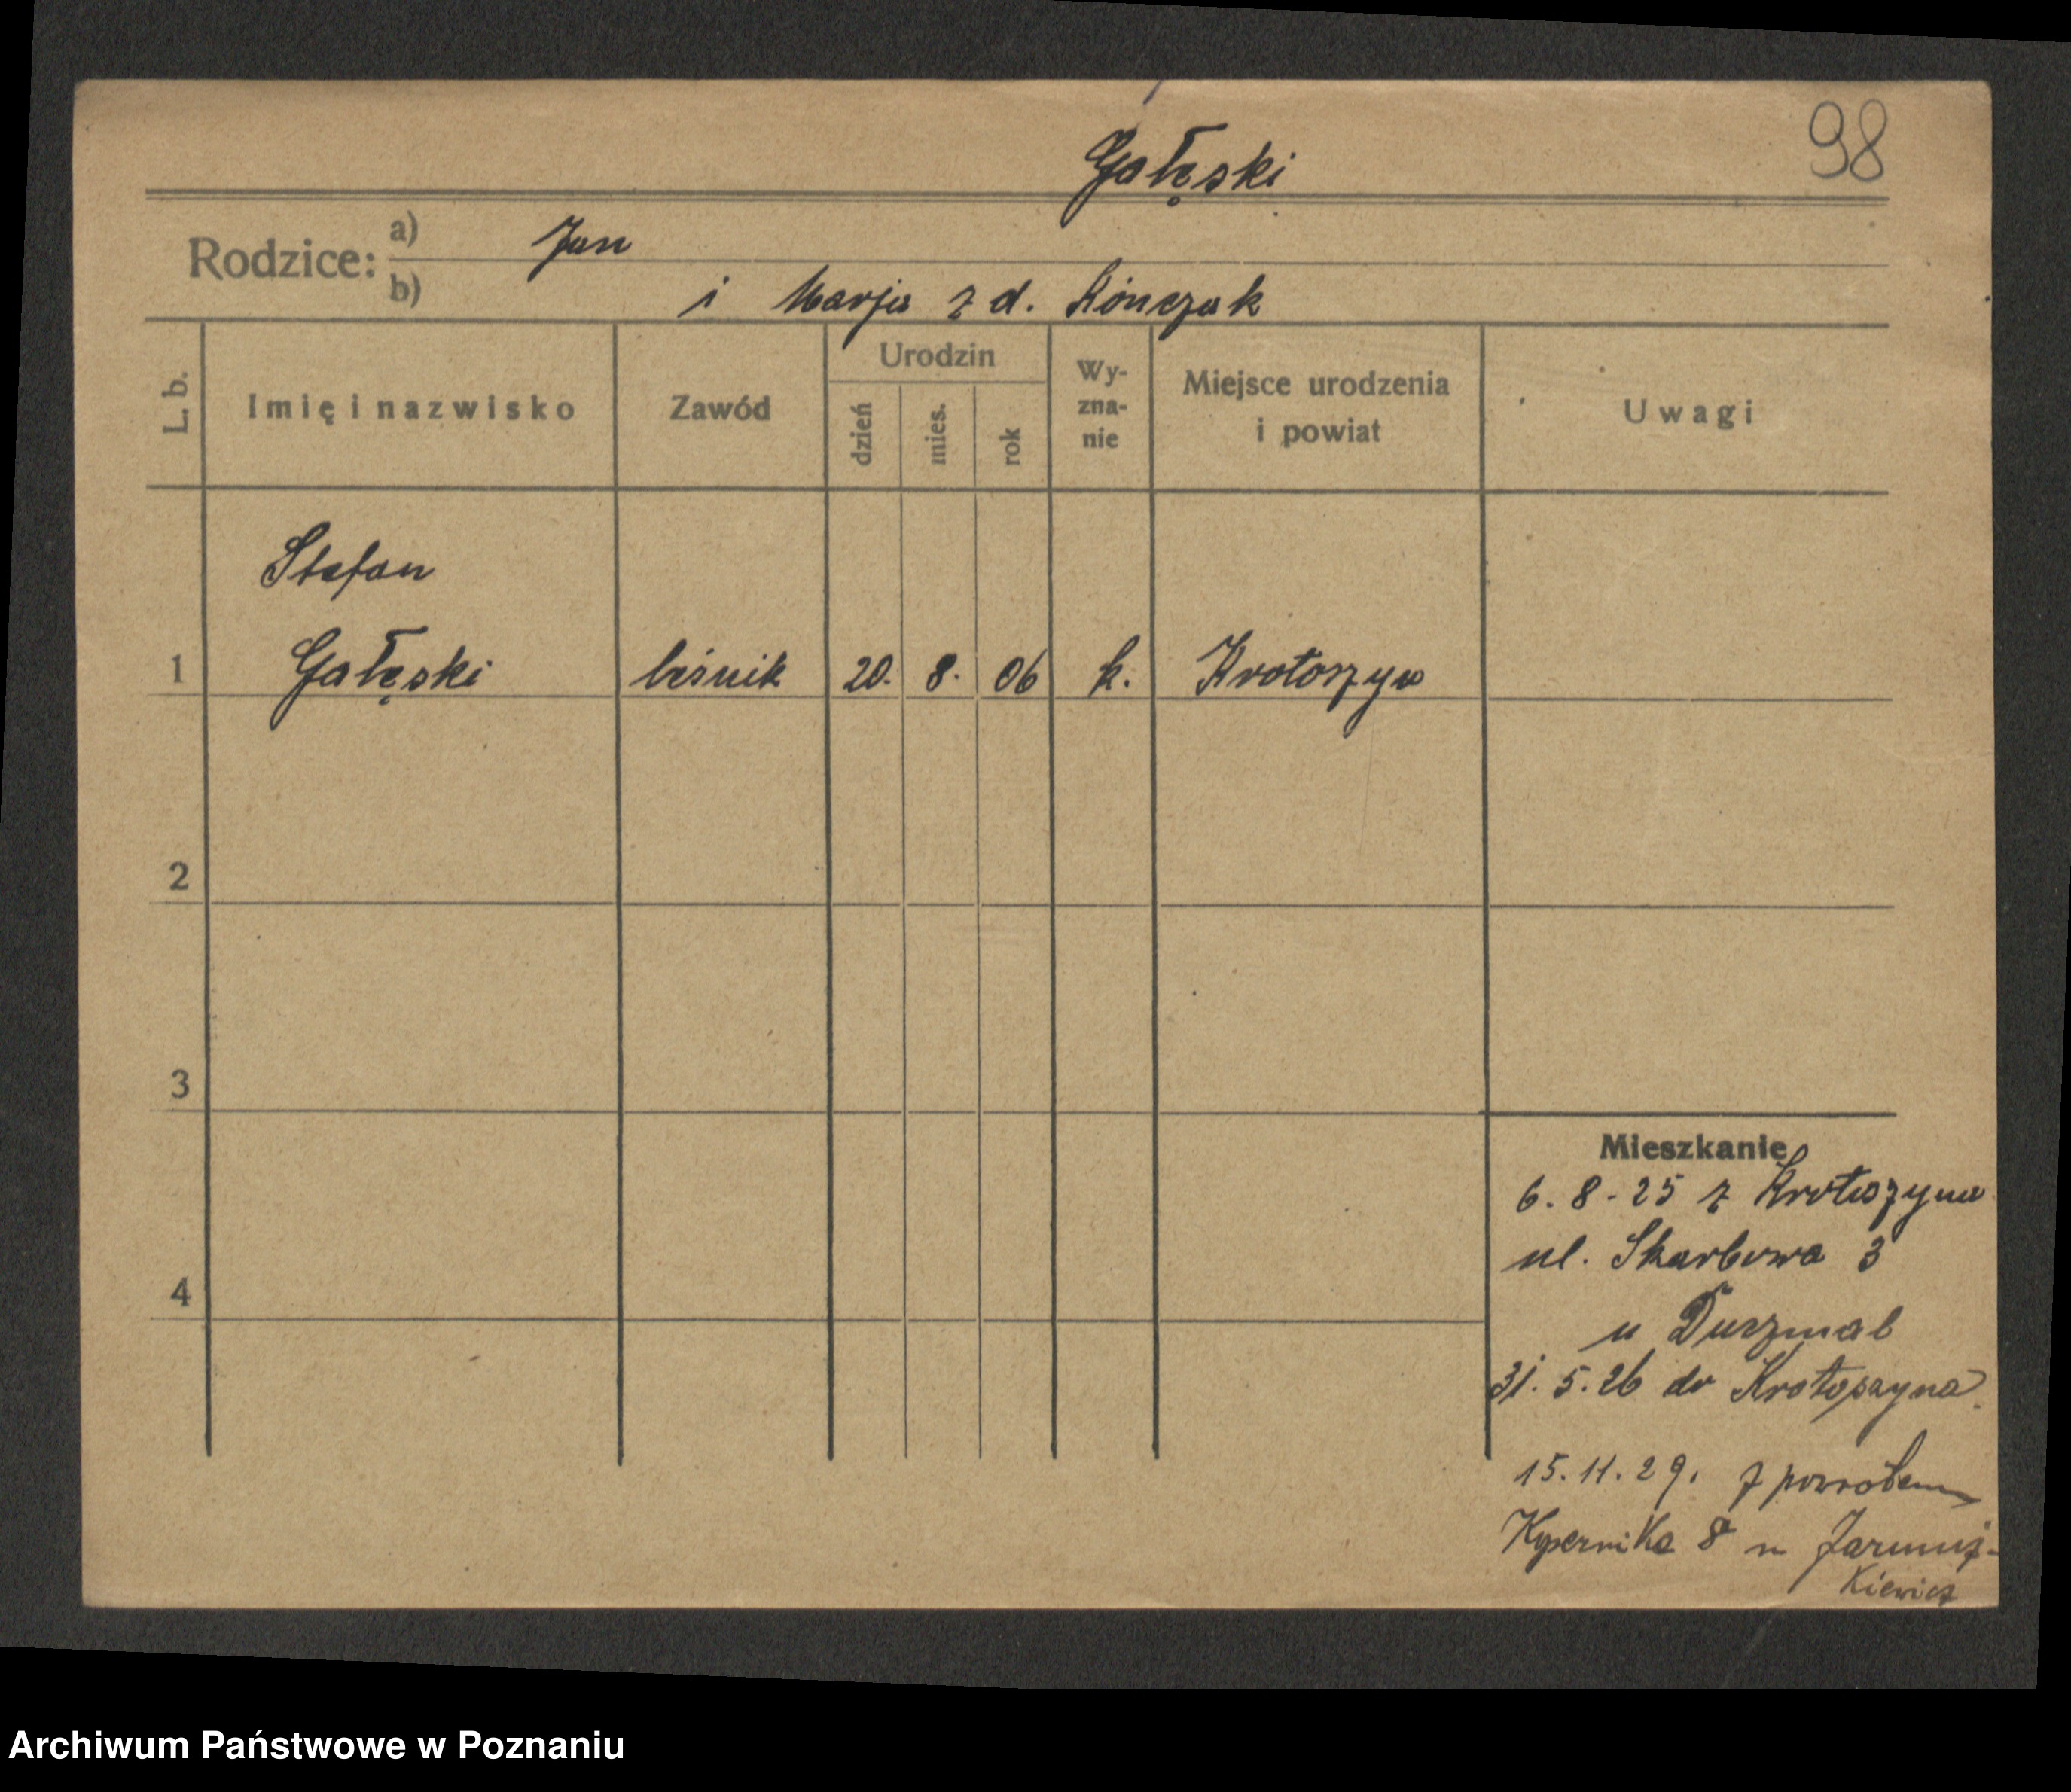 98
Gałęski
Rodzice: a) Jan
b) i Marja z d. Kończak
L. b. Imię i nazwisko Zawód Urodzin dzień mies. rok Wy-zna-nie Miejsce urodzenia i powiat Uwagi
Stefan
1 Gałęski leśnik 20. 8. 06 k. Krotoszyn
2
3
4
Mieszkanie
6. 8 - 25 z Krotoszyna
ul. Skarbowa 3
u
31. 5. 26 do Krotoszyna
15. 11. 29. z powrotem
Kopernika 8 u Jarmuż-
kiewicz
Archiwum Państwowe w Poznaniu